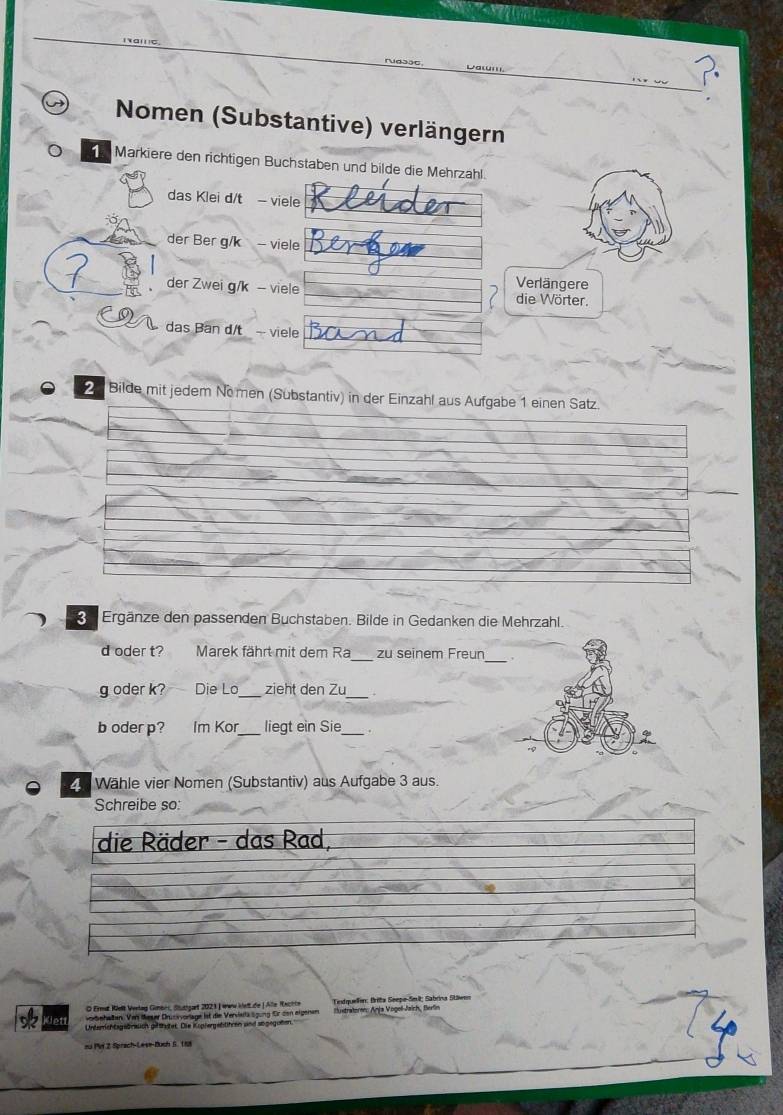 Name: Klasse: Datum:
?
Nomen (Substantive) verlängern
1 Markiere den richtigen Buchstaben und bilde die Mehrzahl.
das Klei d/t – viele Kleider
der Ber g/k – viele Bergen
? ! der Zwei g/k – viele ?
Verlängere
die Wörter.
das Ban d/t – viele Band
2 Bilde mit jedem Nomen (Substantiv) in der Einzahl aus Aufgabe 1 einen Satz.
3 Ergänze den passenden Buchstaben. Bilde in Gedanken die Mehrzahl.
d oder t? Marek fährt mit dem Ra___ zu seinem Freun___ .
g oder k? Die Lo___ zieht den Zu___ .
b oder p? Im Kor___ liegt ein Sie___ .
4 Wähle vier Nomen (Substantiv) aus Aufgabe 3 aus.
Schreibe so:
die Räder – das Rad,
Klett
© Ernst Klett Verlag GmbH, Stuttgart 2021 | www.klett.de | Alle Rechte
vorbehalten. Von dieser Druckvorlage ist die Vervielfältigung für den eigenen
Unterrichtsgebrauch gestattet. Die Kopiergebühren sind abgegolten.
Textquellen: Britta Seepe-Smit; Sabrina
Illustratoren: Anja Vogel-Jaich, Berlin
Sprach-Lese-Buch S. 188